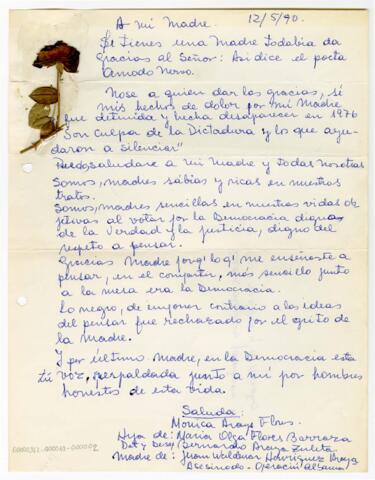 A mi Madre.
12/5/90.
Si tienes una Madre todabia da
Gracias al Señor: Asi dice el poeta
Amado Nervo.
Nose a quien dar las gracias, si
mis hechos de dolor por mi Madre
fue detenida y hecha desaparecer en 1976
Son culpa de la Dictadura y los que ayu-
daron a silenciar"
saludare a mi Madre y todas nosotras
Somos, madres sabias y ricas en nuestros
tratos.
Somos, madres sencillas en nuestras vidas ob-
jetivas al votar por la Democracia dignas
de la Verdad y la justicia, digno del
respeto a pensar.
Gracias Madre porq' me enseñaste a
pensar, en el compartir, más sencillo junto
a la mesa era la Democracia.
Lo negro, de imponer contrario a las ideas
del pensar fue rechazado por el grito de
la madre.
Y por último madre, en la Democracia esta
tú voz, respaldada junto a mi por hombres
honestos de esta vida.
Saluda:
Monica Araya Flores.
Hija de: Maria Olga Flores Barraza
Det y Desp. Bernardo Araya Zuleta
madre de: Juan Waldemar Henriquez Araya
Asesinado. Operación Albania
00000312-000013-000002